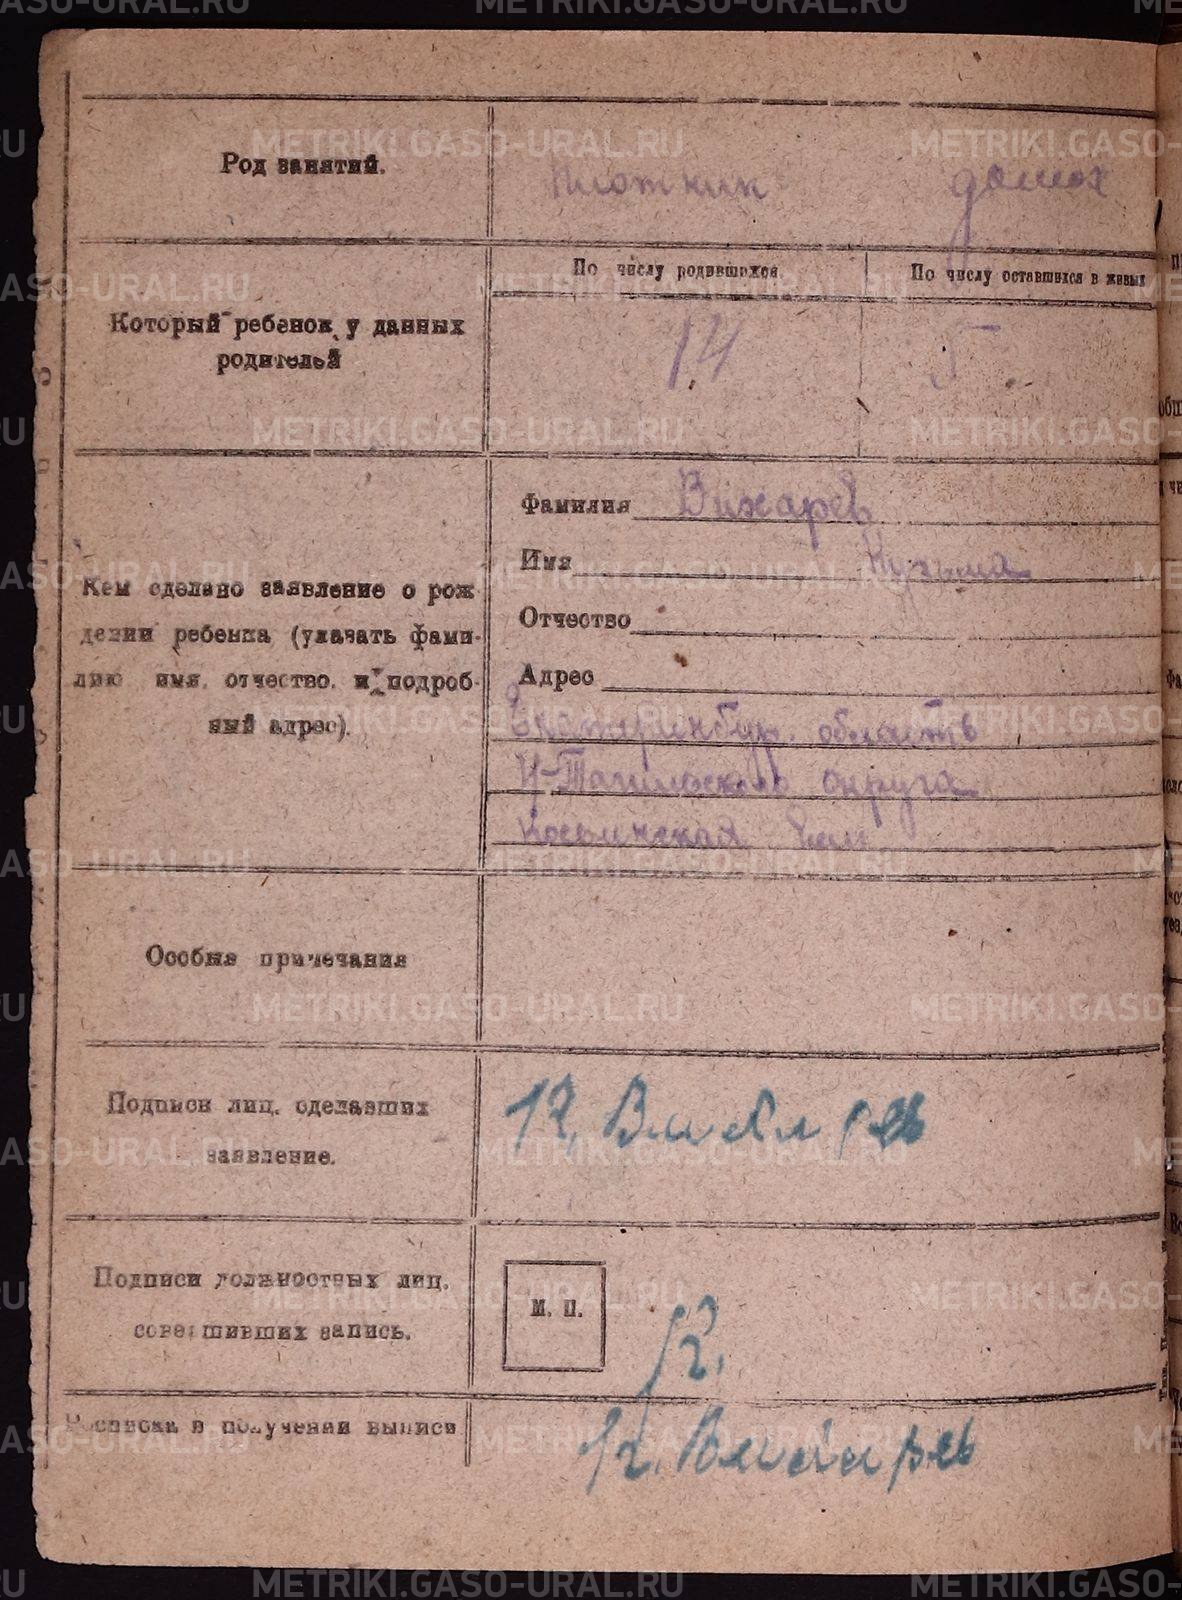 Род занятий.
Плотник домох
По числу родившихся По числу оставшихся в живых
Который ребенок у данных
родителей
14 5
Фамилия Вихарев
Имя Кузьма
Отчество
Адрес
Екатеринбур. область
Н-Тагильского округа
Кем сделано заявление о рож
дении ребенка (указать фами-
лию имя. отчество. и подроб-
ный адрес).
Особыя примечания
Подписи лиц. сделавших
заявление.
К. Вихарев
Подписи должностных лиц.
совершивших запись.
М. П.
Росписка в получении выписи
К. Вихарев
METRIKI.GASO-URAL.RU